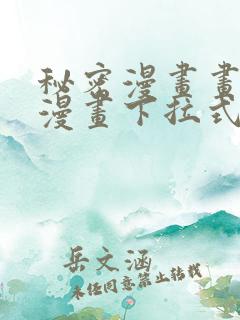 秘密漫畫畫
漫畫下拉式
岳文涵
未任同意禁止转载